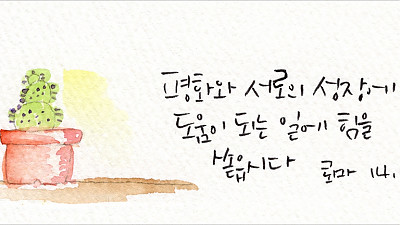 평화와 서로의 성장에
도움이 되는 일에 힘을
쏟읍시다 로마 14.